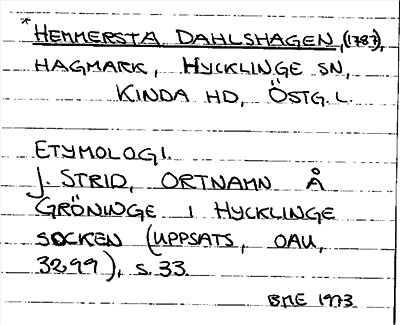 *HEMMERSTA DAHLSHAGEN, (1787),
HAGMARK, HYCKLINGE SN,
KINDA HD, ÖSTG. L.
ETYMOLOGI.
J. STRID, ORTNAMN Å
GRÖNINGE I HYCKLINGE
SOCKEN (UPPSATS, OAU,
3299), s. 33.
BME 1973